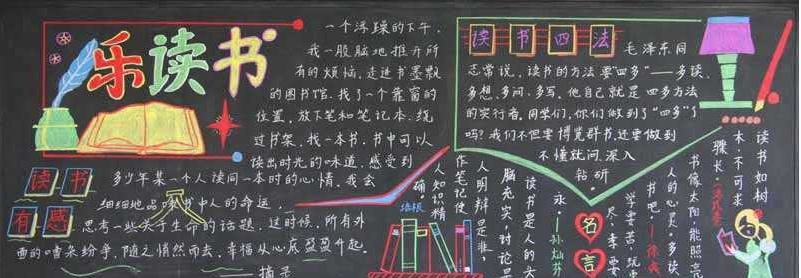 乐读书
一个浮躁的下午,
我一股脑地推开所
有的烦恼,走进书墨飘
的图书馆,找了一个靠窗的
位置,放下笔和笔记本,绕
过书架,找一本书,书中可以
读出时光的味道,感受到
多少年某一个人读同一本时的心情,我会
细细地品味书中人的命运,
思考一些关于生命的话题,这时候,所有外
面的嘈杂纷争,随之悄然而去,幸福从心底盈盈升起
——摘录
读书
有感
读书四法
毛泽东同
志常说,读书的方法要“四多”——多读、
多想、多问、多写,他自己就是四多方法
的实行者,同学们,你们做到了“四多”了
吗?我们不但要博览群书,还要做到
不懂就问,深入
钻研。
读书如树
木,不可求
骤长。
书像太阳,能照亮
人的心灵,多读
书吧。
学要苦,玩要
尽,
名言
读书是人的
永。
脑充实,讨论是
人明辩是非,
作笔记使
人知识精
确。
培根